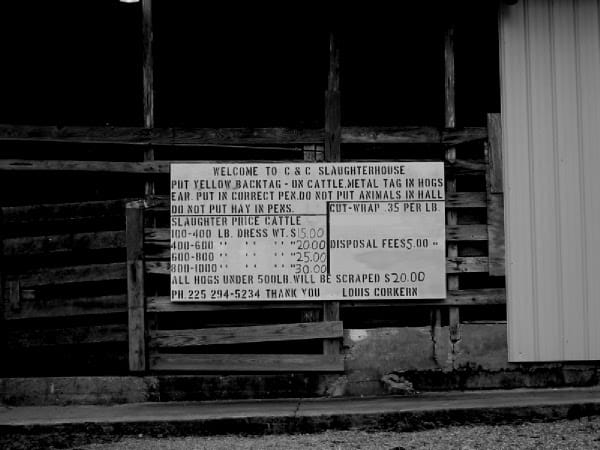 WELCOME TO C & C SLAUGHTERHOUSE
PUT YELLOW BACKTAG - ON CATTLE. METAL TAG IN HOGS
EAR. PUT IN CORRECT PEN. DO NOT PUT ANIMALS IN HALL
DO NOT PUT HAY IN PENS.
CUT-WRAP .35 PER LB.
SLAUGHTER PRICE CATTLE
100-400 LB. DRESS WT. $15.00
400-600 " " " " 20.00
DISPOSAL FEE $5.00
600-800 " " " " 25.00
800-1000 " " " " 30.00
ALL HOGS UNDER 500LB. WILL BE SCRAPED $20.00
PH. 225 294-5234 THANK YOU LOUIS CORKERN